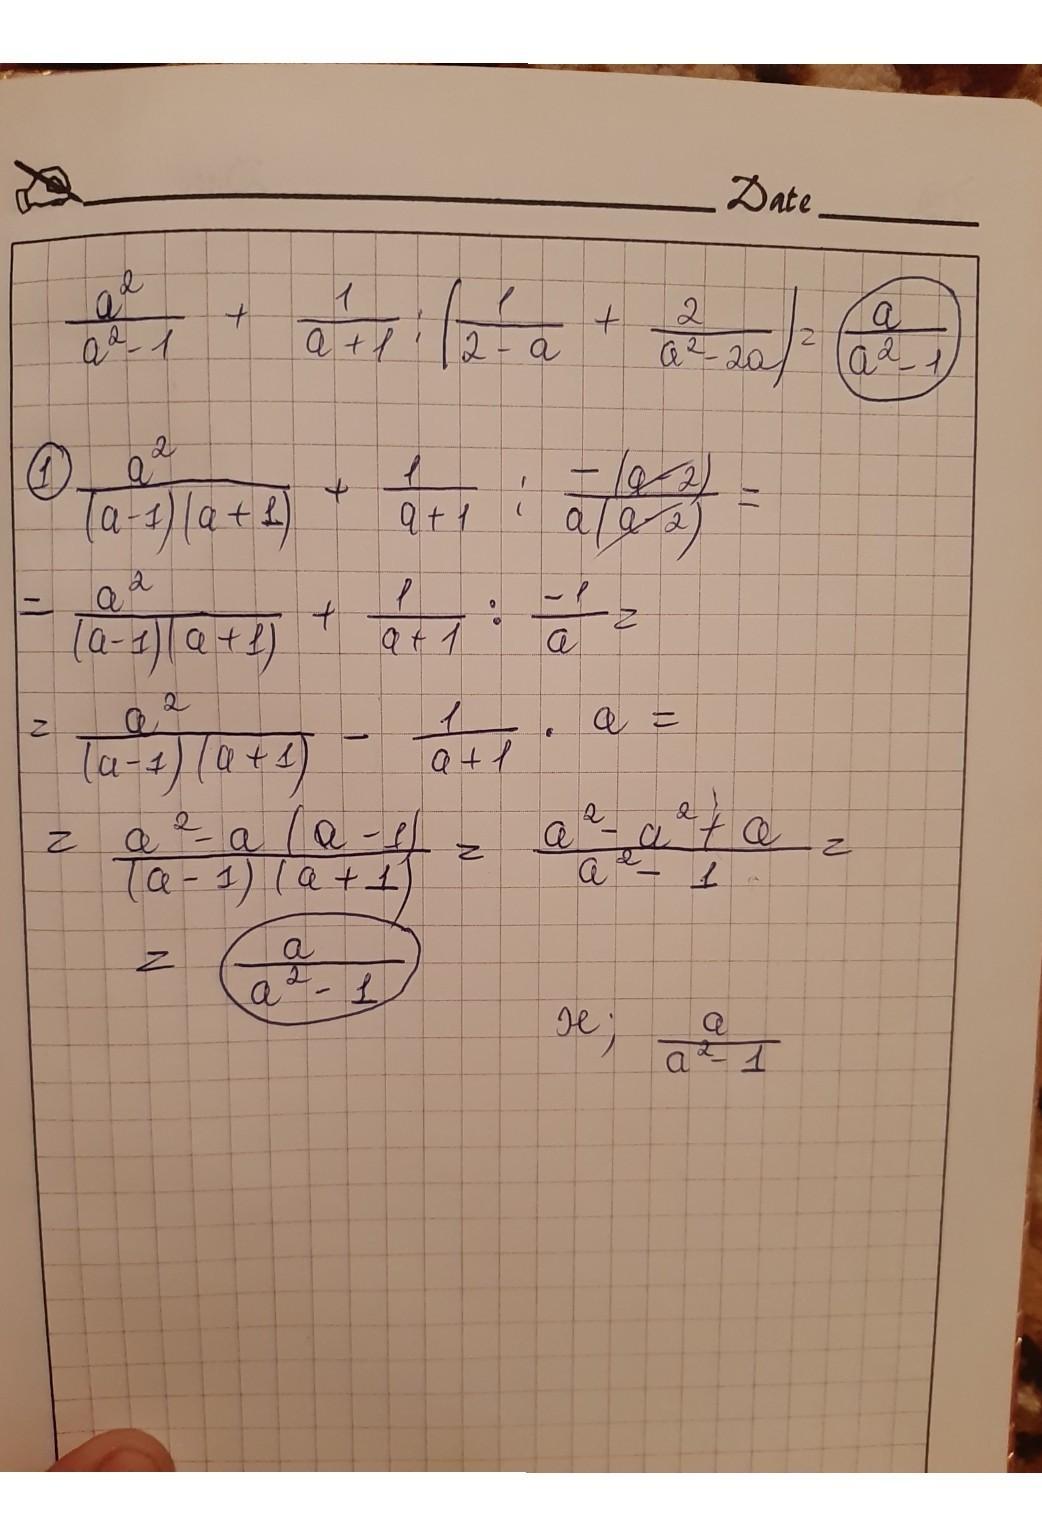 Date
a²/(a²-1) + 1/(a+1) : (1/(2-a) + 2/(a²-2a)) = a/(a²-1)
① a²/((a-1)(a+1)) + 1/(a+1) : -(a-2)/(a(a-2)) =
= a²/((a-1)(a+1)) + 1/(a+1) : -1/a =
= a²/((a-1)(a+1)) - 1/(a+1) · a =
= (a²-a(a-1))/((a-1)(a+1)) = (a²-a²+a)/(a²-1) =
= a/(a²-1)
ж; a/(a²-1)